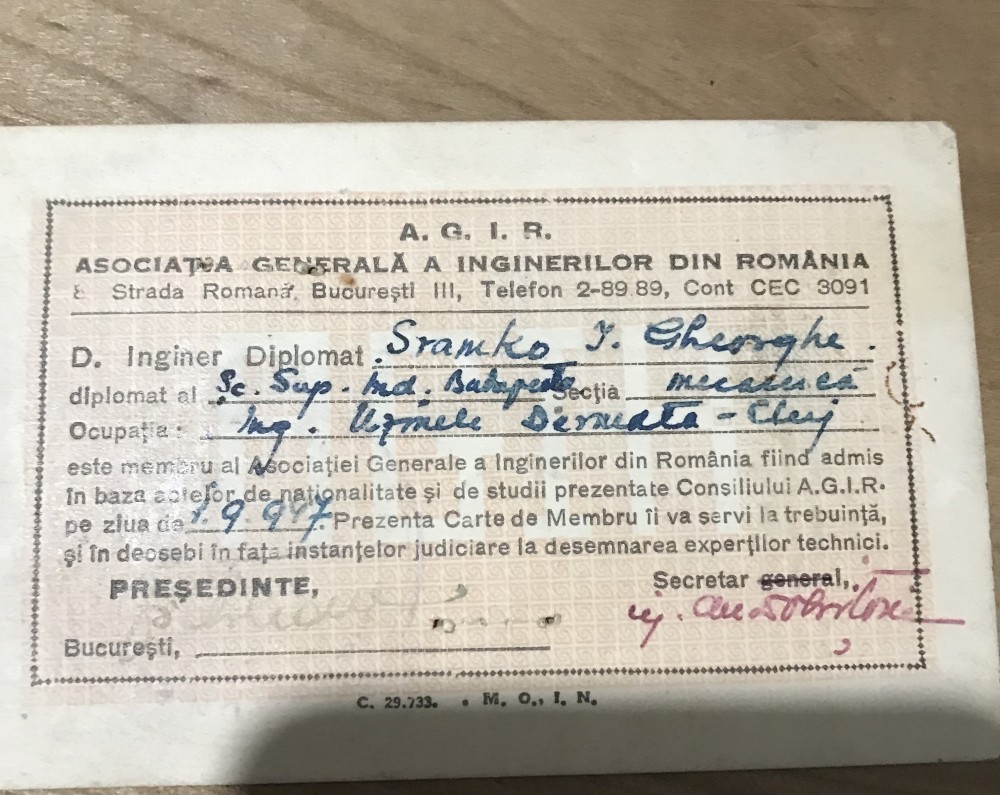 A. G. I. R.
ASOCIAȚIA GENERALĂ A INGINERILOR DIN ROMÂNIA
Strada Romană, București III, Telefon 2-89.89, Cont CEC 3091
D. Inginer Diplomat Sramko I. Gheorghe
diplomat al Șc. Sup. Ind. Budapesta Secția mecanică
Ocupația: Ing. Uzinele Dermata - Cluj
este membru al Asociației Generale a Inginerilor din România fiind admis
în baza actelor de naționalitate și de studii prezentate Consiliului A.G.I.R.
pe ziua de 1.9.947. Prezenta Carte de Membru îi va servi la trebuință,
și în deosebi în fața instanțelor judiciare la desemnarea experților technici.
PREȘEDINTE,
Secretar general,
București,
C. 29.733. • M. O., I. N.